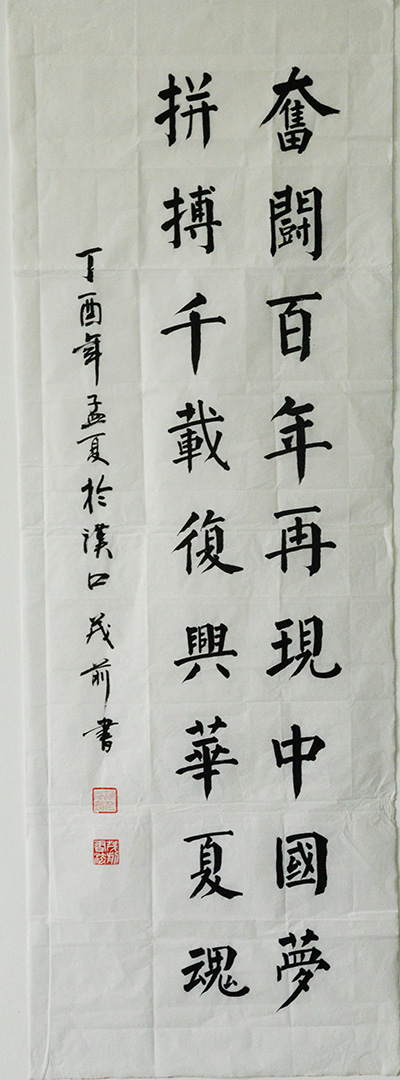 奮鬪百年再現中國夢
拼搏千載復興華夏魂
丁酉年孟夏於漢口茂前書